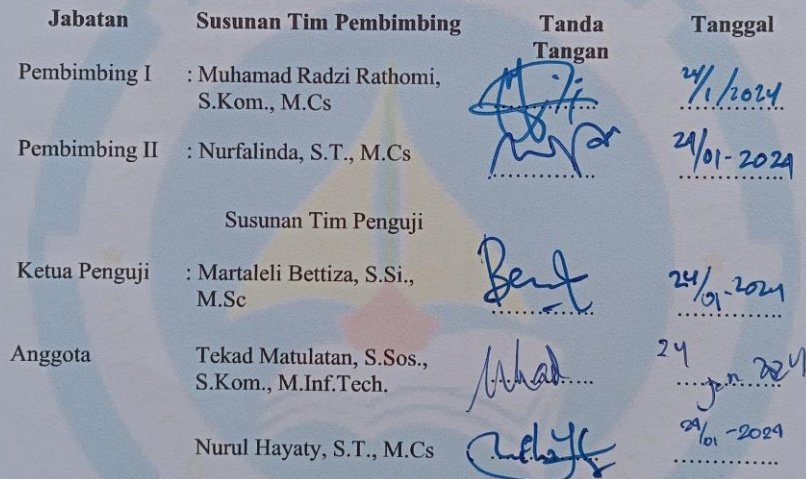 Jabatan Susunan Tim Pembimbing Tanda Tangan Tanggal
Pembimbing I : Muhamad Radzi Rathomi, 24/1/2024
S.Kom., M.Cs
Pembimbing II : Nurfalinda, S.T., M.Cs 24/01-2024
Susunan Tim Penguji
Ketua Penguji : Martaleli Bettiza, S.Si., 24/01-2024
M.Sc
Anggota Tekad Matulatan, S.Sos., 24 Jan 2024
S.Kom., M.Inf.Tech.
Nurul Hayaty, S.T., M.Cs 24/01-2024